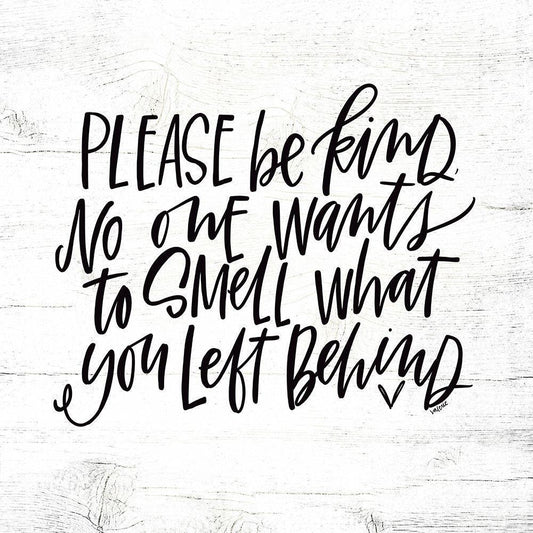 PLEASE be kind.
No onE wants
to SMELL what
you Left BehinD